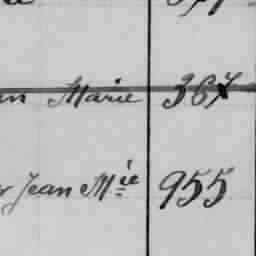 Marie 367
Jean Mie 955